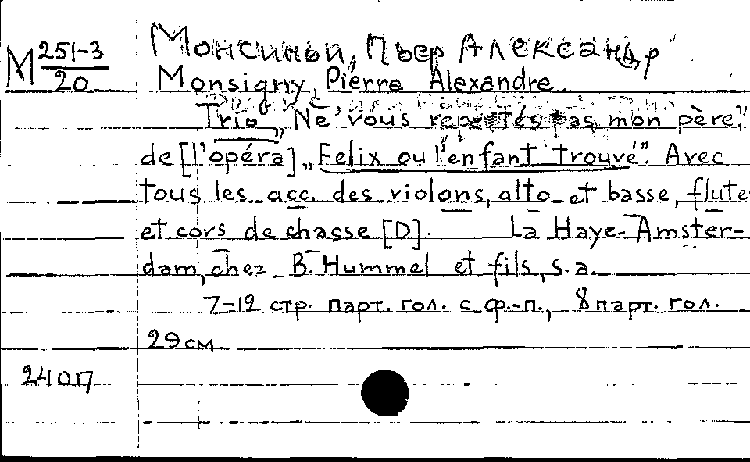 М 251-3/20
Монсиньи, Пьер Александр
Monsigny, Pierre Alexandre.
Trio „Ne vous repentés pas mon père"
de [l'opéra] „Felix ou l'enfant trouvé". Avec
tous les acc. des violons, alto et basse, flute
et cors de chasse [D]. La Haye-Amster-
dam, chez B. Hummel et fils, s.a.
7-12 стр. парт. гол. с ф.-п., 8 парт. гол.
29 см